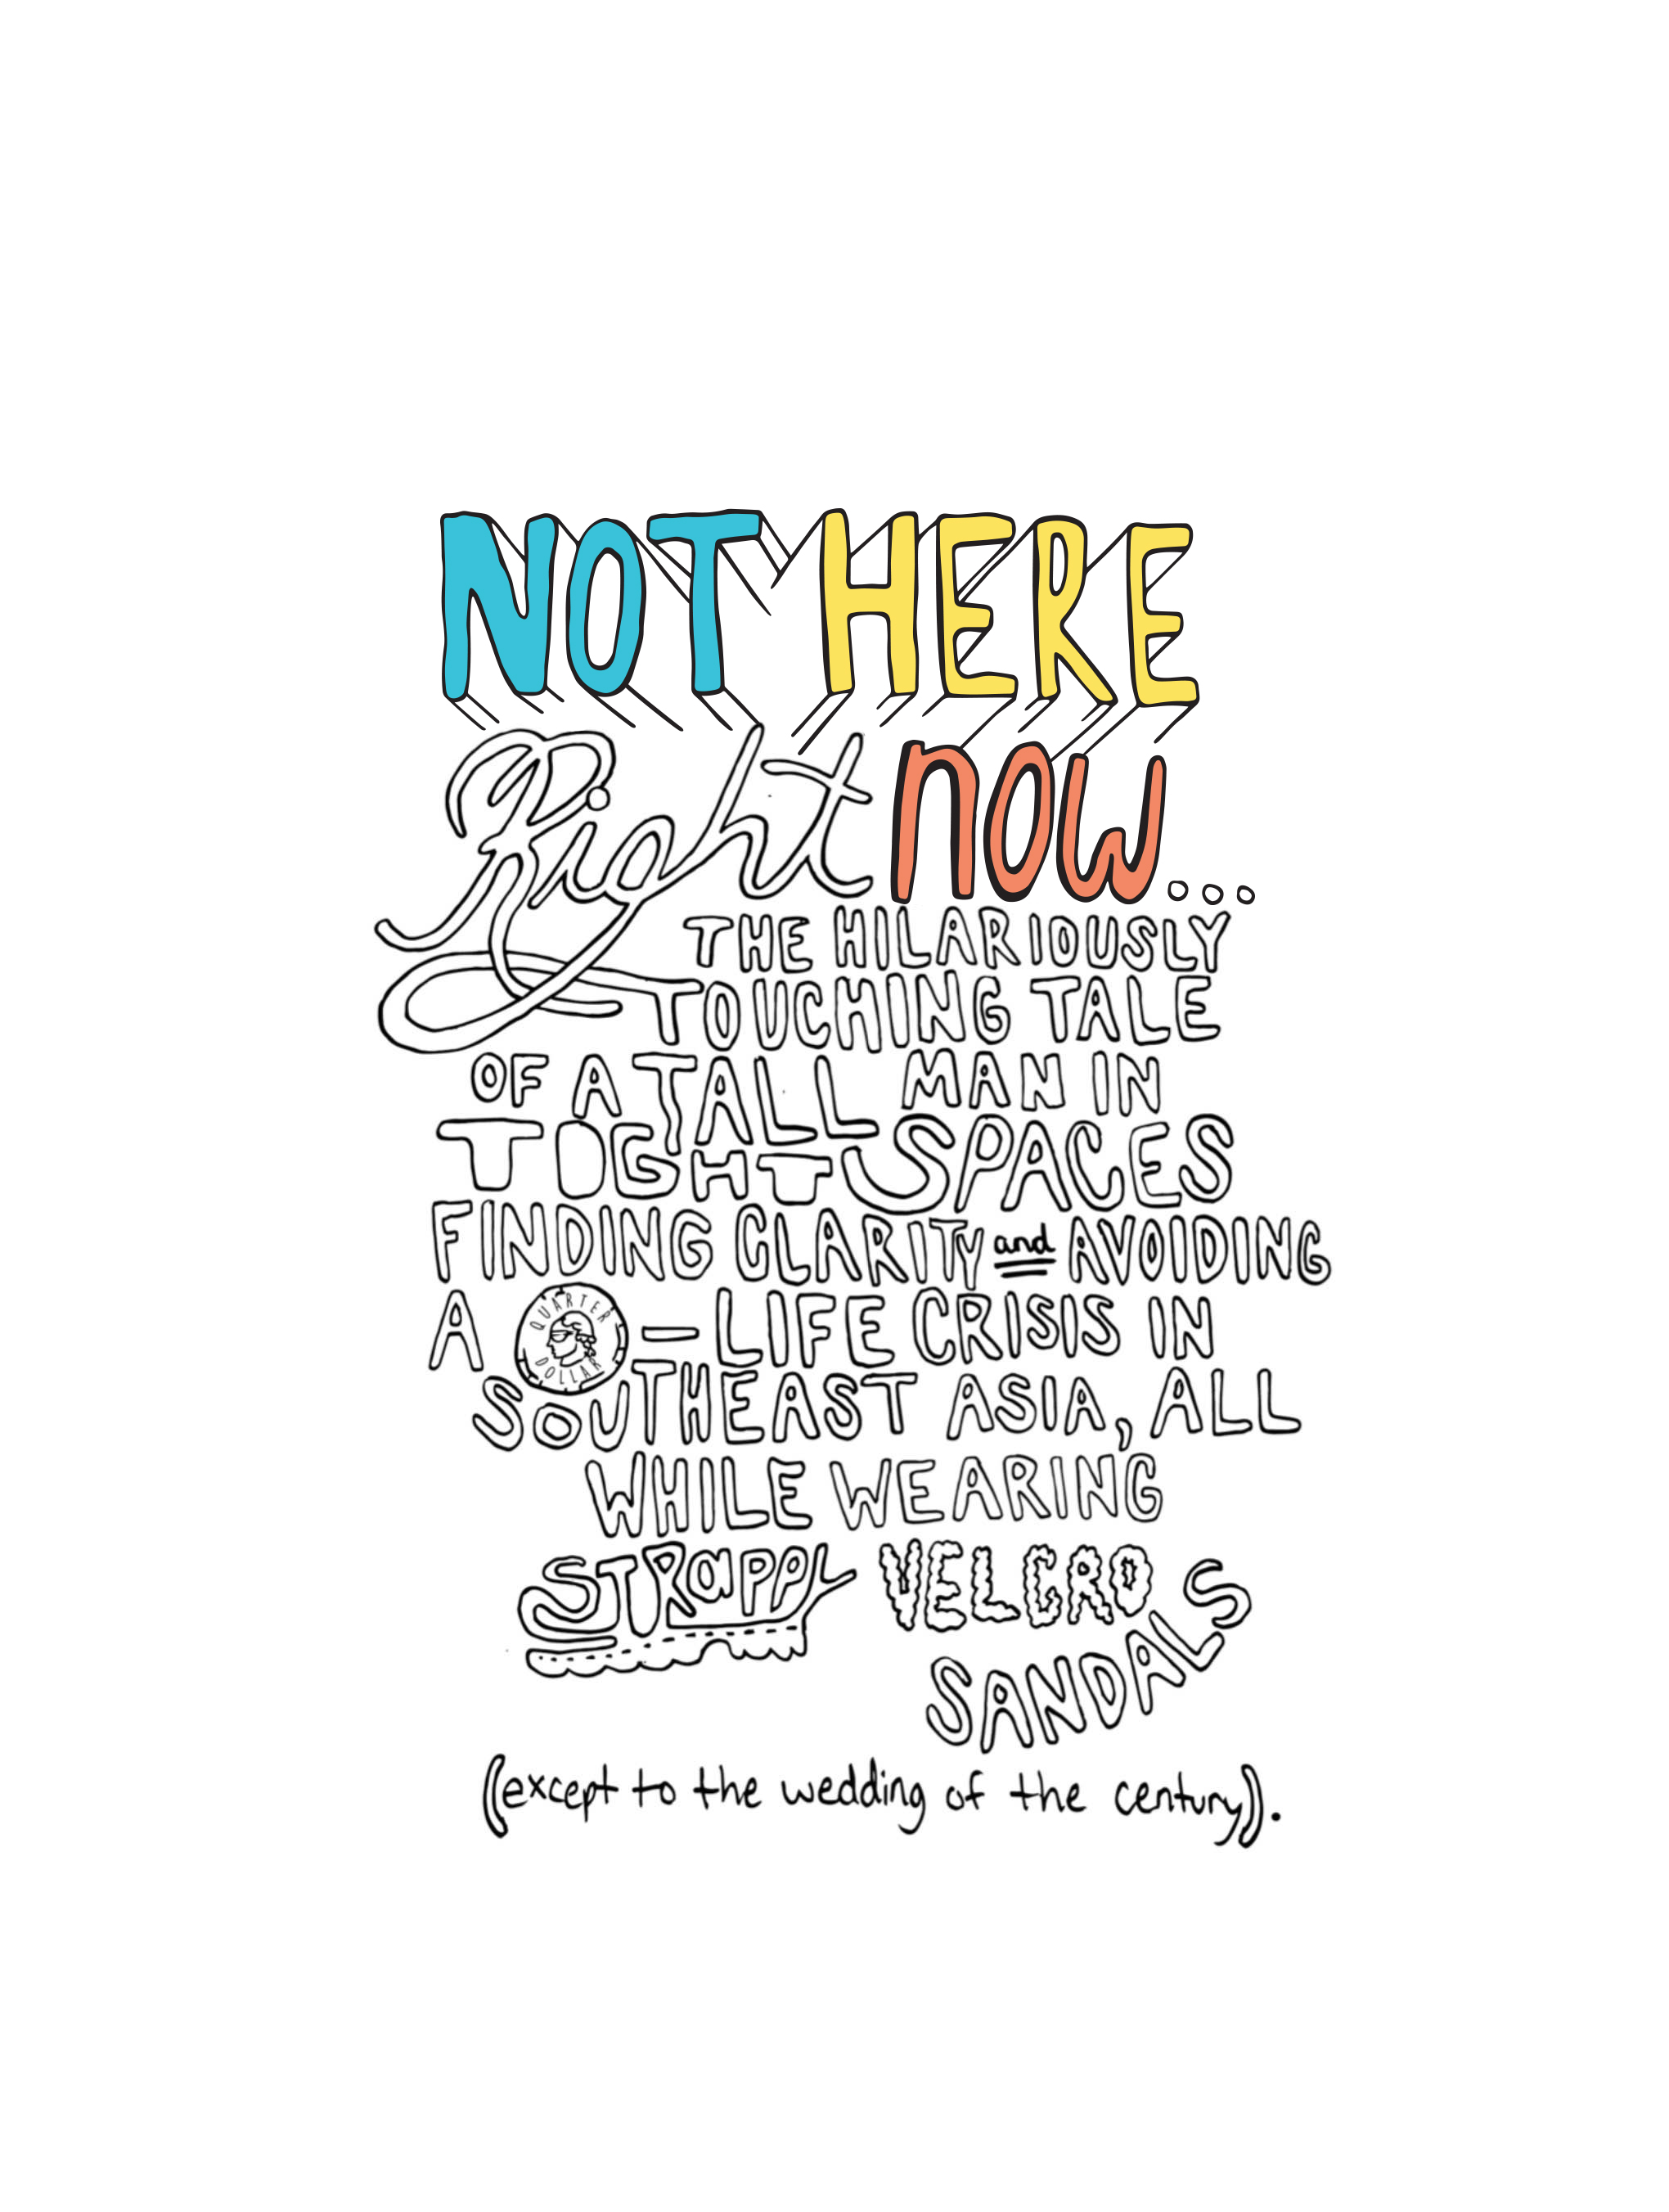 NOT HERE
Right now...
THE HILARIOUSLY
TOUCHING TALE
OF A TALL MAN IN
TIGHT SPACES
FINDING CLARITY and AVOIDING
A QUARTER DOLLAR-LIFE CRISIS IN
SOUTHEAST ASIA, ALL
WHILE WEARING
STRAPPY VELCRO
SANDALS
(except to the wedding of the century).